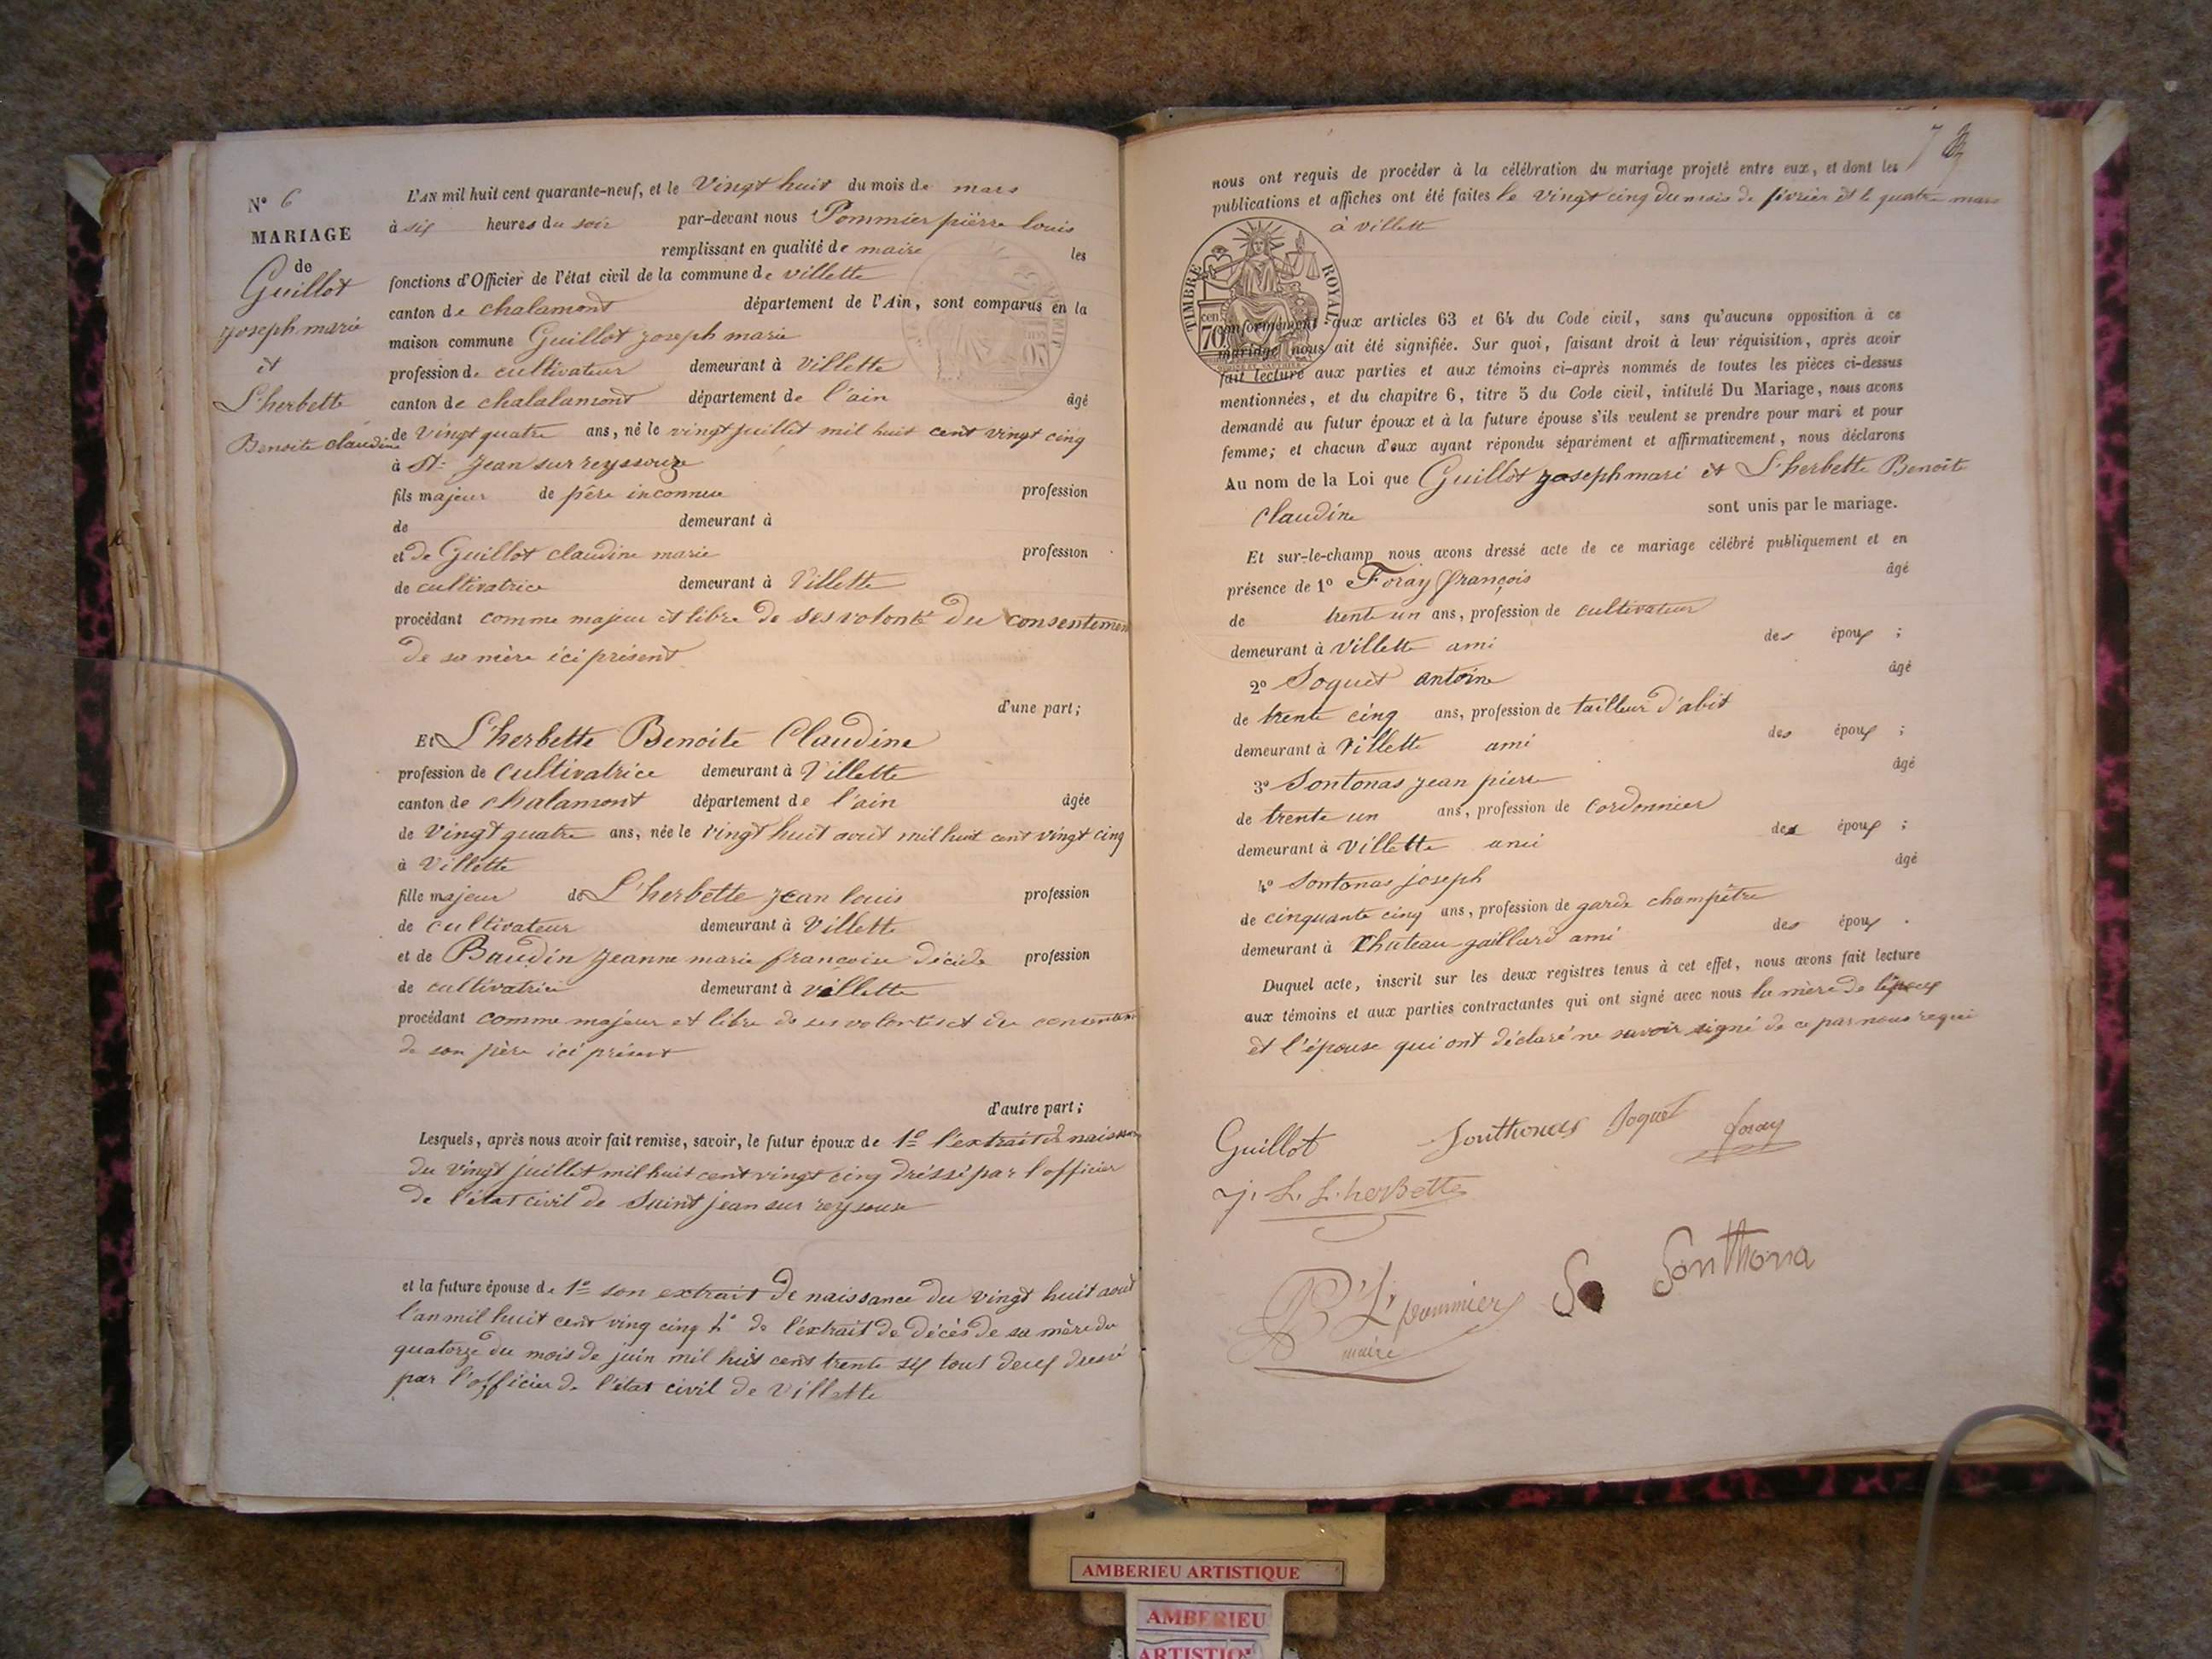 N° 6
MARIAGE
de
Guillot
joseph marie
et
L'herbette
Benoite claudine
L'AN mil huit cent quarante-neuf, et le Vingt huit du mois de mars
à six heures du soir par-devant nous Pommier pièrre louis
remplissant en qualité de maire les
fonctions d'Officier de l'état civil de la commune de villette
canton de chalamont département de l'Ain, sont comparus en la
maison commune Guillot joseph marie
profession de cultivateur demeurant à Villette
canton de chalalamont département de l'ain âgé
de Vingt quatre ans, né le vingt juillet mil huit cent vingt cinq
à St: jean sur reyssouze
fils majeur de père inconnue profession
de demeurant à
et de Guillot claudine marie profession
de cultivatrice demeurant à Villette
procédant comme majeur et libre de ses volonté du consentemen
de sa mère ici présent
d'une part;
Et L'herbette Benoite Claudine
profession de cultivatrice demeurant à Villette
canton de chalamont département de l'ain âgée
de Vingt quatre ans, née le vingt huit aout mil huit cent vingt cinq
à Villette
fille majeur de L'herbette jean louis profession
de cultivateur demeurant à Villette
et de Baudin jeanne marie francoise décédé profession
de cultivatrice demeurant à villette
procédant comme majeur et libre de ses volontés et du
de son père ici présent
d'autre part;
Lesquels, après nous avoir fait remise, savoir, le futur époux de 1° l'extrait de
du Vingt juillet mil huit cent vingt cinq dréssé par l'officier
de l'état civil de Saint jean sur reysouse
et la future épouse de 1° son extrait de naissance du vingt huit aout
l'an mil huit cent ving cinq 2° de l'éxtrait de décès de sa mère du
quatorze du mois de juin mil huit cent trente six tout deux
par l'officier de l'état civil de Villette
7
nous ont requis de procéder à la célébration du mariage projeté entre eux, et dont les
publications et affiches ont été faites le vingt cinq du mois de février et le quatre mars
à villette
TIMBRE ROYAL
cen
70
conformément aux articles 63 et 64 du Code civil, sans qu'aucune opposition à ce
mariage nous ait été signifiée. Sur quoi, faisant droit à leur réquisition, après avoir
fait lecture aux parties et aux témoins ci-après nommés de toutes les pièces ci-dessus
mentionnées, et du chapitre 6, titre 5 du Code civil, intitulé Du Mariage, nous avons
demandé au futur époux et à la future épouse s'ils veulent se prendre pour mari et pour
femme; et chacun d'eux ayant répondu séparément et affirmativement, nous déclarons
Au nom de la Loi que Guillot joseph mari et L'herbette Benoite
Claudine sont unis par le mariage.
Et sur-le-champ nous avons dressé acte de ce mariage célébré publiquement et en
présence de 1° Foray françois âgé
de trente un ans, profession de cultivateur
demeurant à Villette ami des époux ;
2° Soquet antoine âgé
de trente cinq ans, profession de tailleur d'abit
demeurant à Villette ami des époux ;
3° Sontonas jean pierre âgé
de trente un ans, profession de cordonnier
demeurant à Villette ami des époux ;
4° Sontonas joseph âgé
de cinquante cinq ans, profession de garde champêtre
demeurant à Chateau gaillard ami des époux .
Duquel acte, inscrit sur les deux registres tenus à cet effet, nous avons fait lecture
aux témoins et aux parties contractantes qui ont signé avec nous la mère de l'époux
et l'épouse qui ont déclaré ne savoir signé de ce par nous requi
Guillot Soquet foray
j. L. L.herbette
P L pommier Sonthona
maire
AMBERIEU ARTISTIQUE
AMBERIEU